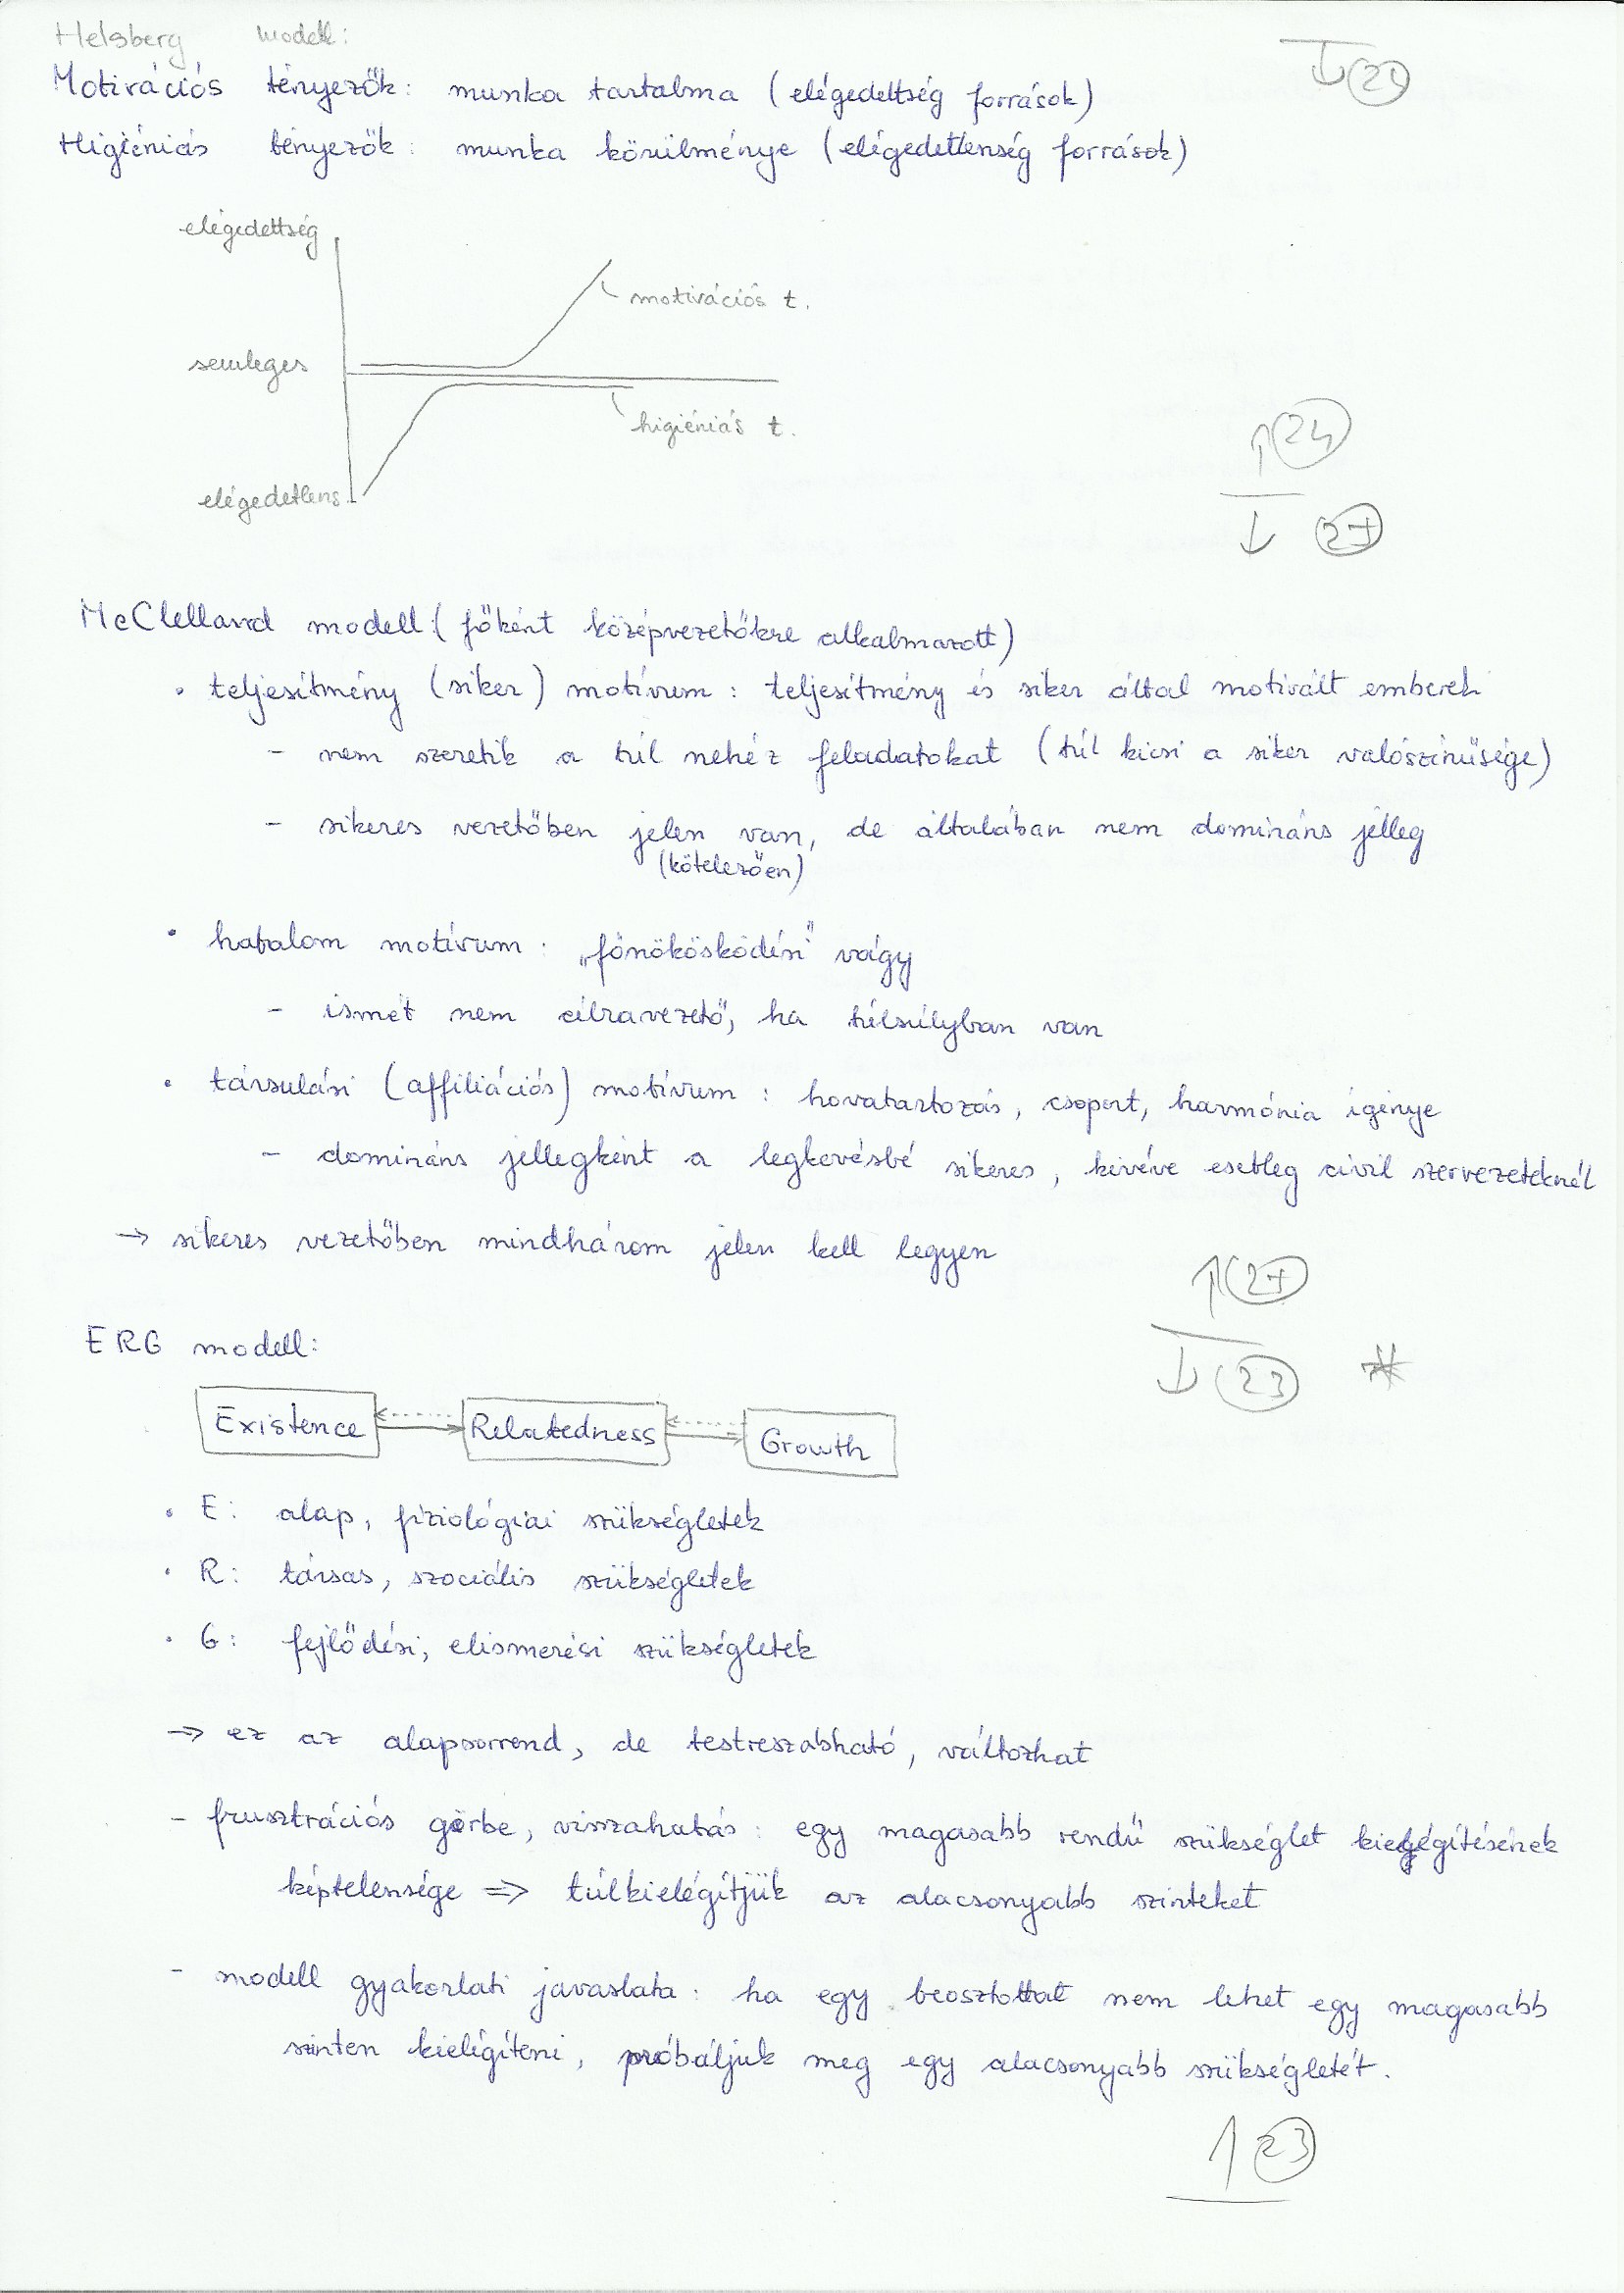 Helsberg modell:
↓ 24
Motivációs tényezők: munka tartalma (elégedettség források)
Higiéniás tényezők: munka körülménye (elégedetlenség források)
elégedettség
motivációs t.
semleges
higiéniás t.
elégedetlens.
↑ 24
↓ 27
McClelland modell: (főként középvezetőkre alkalmazott)
• teljesítmény (siker) motívum: teljesítmény és siker által motivált emberek
- nem szeretik a túl nehéz feladatokat (túl kicsi a siker valószínűsége)
- sikeres vezetőben jelen van, de általában nem domináns jelleg
(kötelezően)
• hatalom motívum: „főnökösködési" vágy
- ismét nem célravezető, ha túlsúlyban van
• társulási (affiliációs) motívum: hovatartozás, csoport, harmónia igénye
- domináns jellegként a legkevésbé sikeres, kivéve esetleg civil szervezeteknél
→ sikeres vezetőben mindhárom jelen kell legyen
↑ 27
↓ 23 *
ERG modell:
Existence Relatedness Growth
• E: alap, fiziológiai szükségletek
• R: társas, szociális szükségletek
• G: fejlődési, elismerési szükségletek
→ ez az alapsorrend, de testreszabható, változhat
- frusztrációs görbe, visszahatás: egy magasabb rendű szükséglet kielégítésének
képtelensége => túlkielégítjük az alacsonyabb szinteket
- modell gyakorlati javaslata: ha egy beosztottat nem lehet egy magasabb
szinten kielégíteni, próbáljuk meg egy alacsonyabb szükségletét.
↑ 23